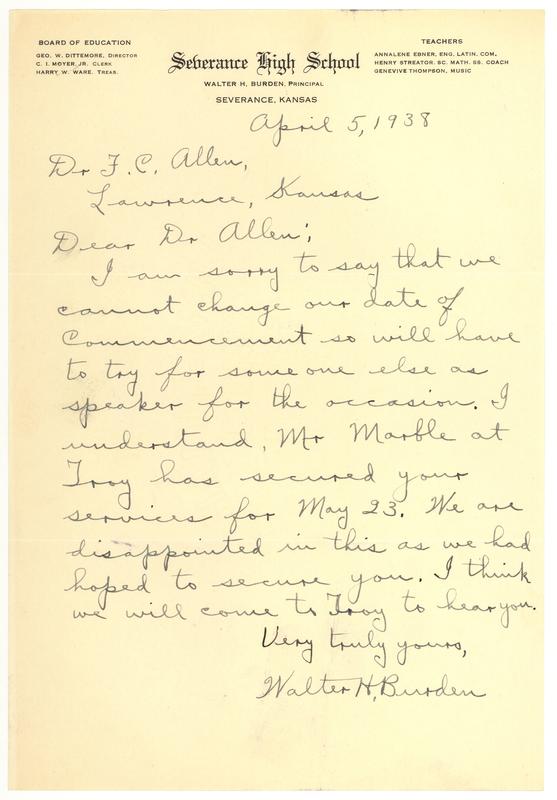 BOARD OF EDUCATION
GEO. W. DITTEMORE, DIRECTOR
C. I. MOYER, JR. CLERK
HARRY W. WARE. TREAS.
Severance High School
WALTER H. BURDEN, PRINCIPAL
SEVERANCE, KANSAS
TEACHERS
ANNALENE EBNER, ENG. LATIN. COM.
HENRY STREATOR. SC. MATH. SS. COACH
GENEVIVE THOMPSON, MUSIC
April 5, 1938
Dr F. C. Allen,
Lawrence, Kansas
Dear Dr Allen;
I am sorry to say that we
cannot change our date of
Commencement so will have
to try for someone else as
speaker for the occasion. I
understand, Mr Marble at
Troy has secured your
services for May 23. We are
disappointed in this as we had
hoped to secure you. I think
we will come to Troy to hear you.
Very truly yours,
Walter H. Burden